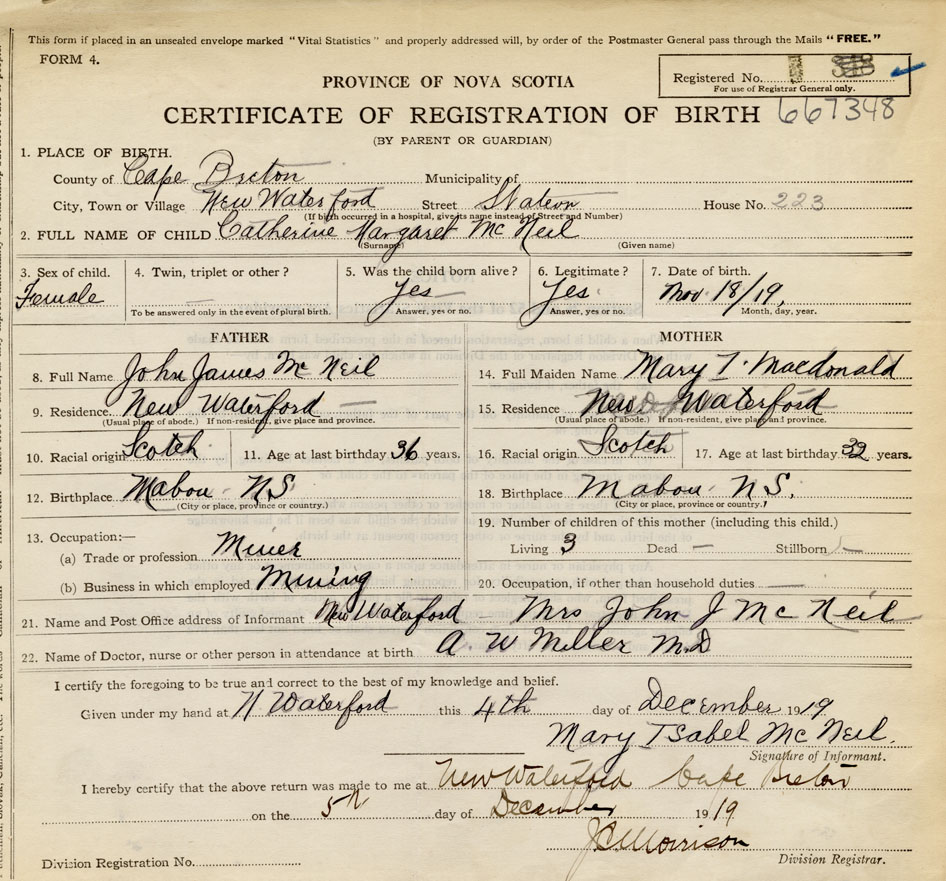 This form if placed in an unsealed envelope marked "Vital Statistics" and properly addressed will, by order of the Postmaster General pass through the Mails "FREE."
FORM 4.
Registered No.
For use of Registrar General only.
PROVINCE OF NOVA SCOTIA
CERTIFICATE OF REGISTRATION OF BIRTH 667348
(BY PARENT OR GUARDIAN)
1. PLACE OF BIRTH.
County of Cape Breton Municipality of
City, Town or Village New Waterford Street House No. 223
(If birth occurred in a hospital, give its name instead of Street and Number)
2. FULL NAME OF CHILD Catherine Margaret McNeil
(Surname) (Given name)
3. Sex of child. 4. Twin, triplet or other? 5. Was the child born alive? 6. Legitimate? 7. Date of birth.
Female — Yes Yes. Nov. 18/19,
To be answered only in the event of plural birth. Answer, yes or no. Answer, yes or no. Month, day, year.
FATHER MOTHER
8. Full Name John James McNeil 14. Full Maiden Name Mary I. Macdonald
9. Residence New Waterford — 15. Residence New Waterford
(Usual place of abode.) If non-resident, give place and province. (Usual place of abode.) If non-resident, give place and province.
10. Racial origin Scotch 11. Age at last birthday 36 years. 16. Racial origin Scotch 17. Age at last birthday 32 years.
12. Birthplace Mabou NS 18. Birthplace Mabou NS.
(City or place, province or country.) (City or place, province or country.)
19. Number of children of this mother (including this child.)
13. Occupation:—
(a) Trade or profession Miner Living 3 Dead — Stillborn —
(b) Business in which employed Mining 20. Occupation, if other than household duties —
21. Name and Post Office address of Informant New Waterford - Mrs John J McNeil
22. Name of Doctor, nurse or other person in attendance at birth. A. W Miller M.D
I certify the foregoing to be true and correct to the best of my knowledge and belief.
Given under my hand at N Waterford this 4th day of December 1919
Mary Isabel McNeil.
Signature of Informant.
I hereby certify that the above return was made to me at New Waterford Cape Breton
on the 5th day of December 1919
JC Morrison
Division Registration No. Division Registrar.